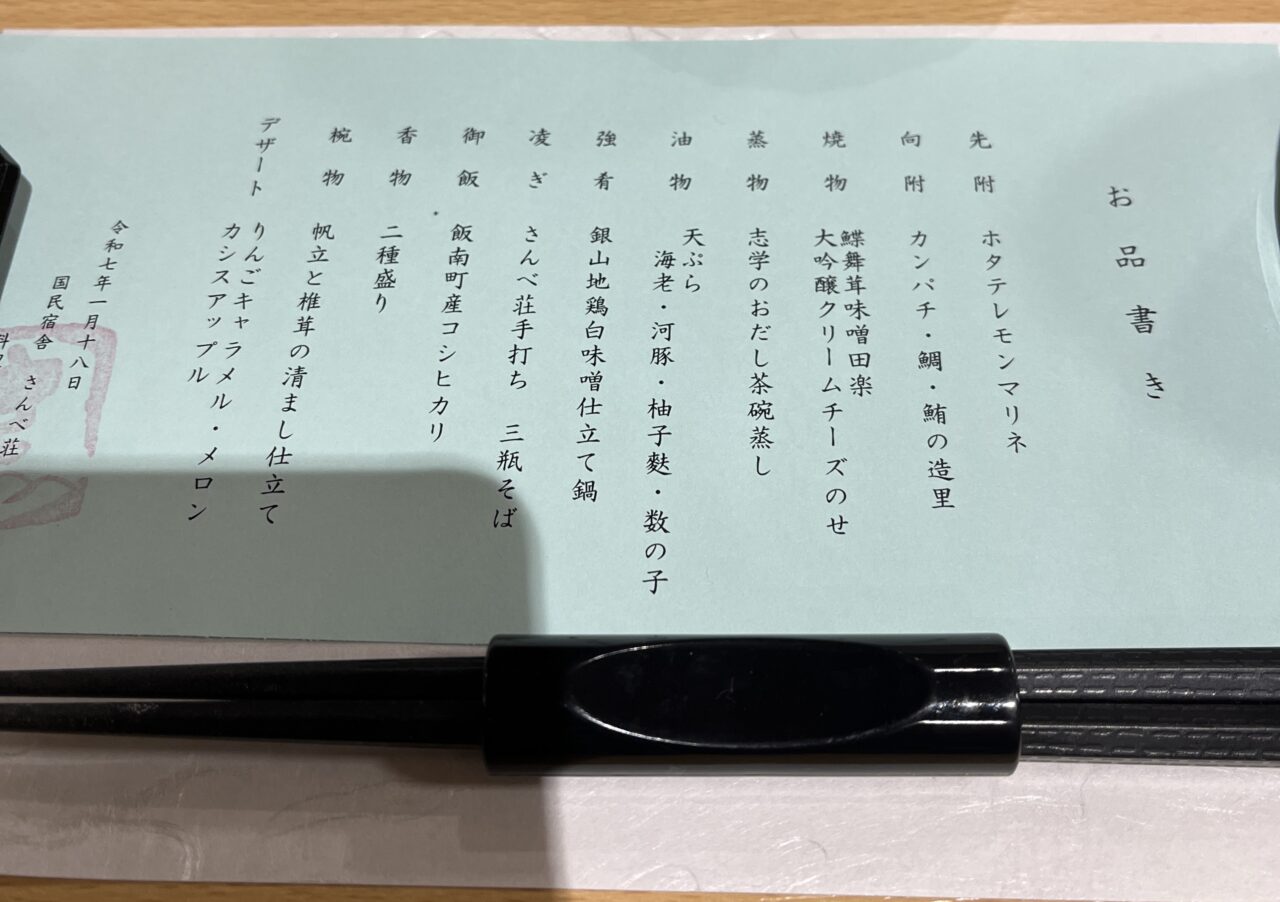 お品書き
先附 ホタテレモンマリネ
向附 カンパチ・鯛・鮪の造里
焼物 鰈舞茸味噌田楽
大吟醸クリームチーズのせ
蒸物 志学のおだし茶碗蒸し
油物 天ぷら
海老・河豚・柚子麩・数の子
強肴 銀山地鶏白味噌仕立て鍋
凌ぎ さんべ荘手打ち 三瓶そば
御飯 飯南町産コシヒカリ
香物 二種盛り
椀物 帆立と椎茸の清まし仕立て
デザート りんごキャラメル・メロン
カシスアップル
令和七年一月十八日
国民宿舎 さんべ荘